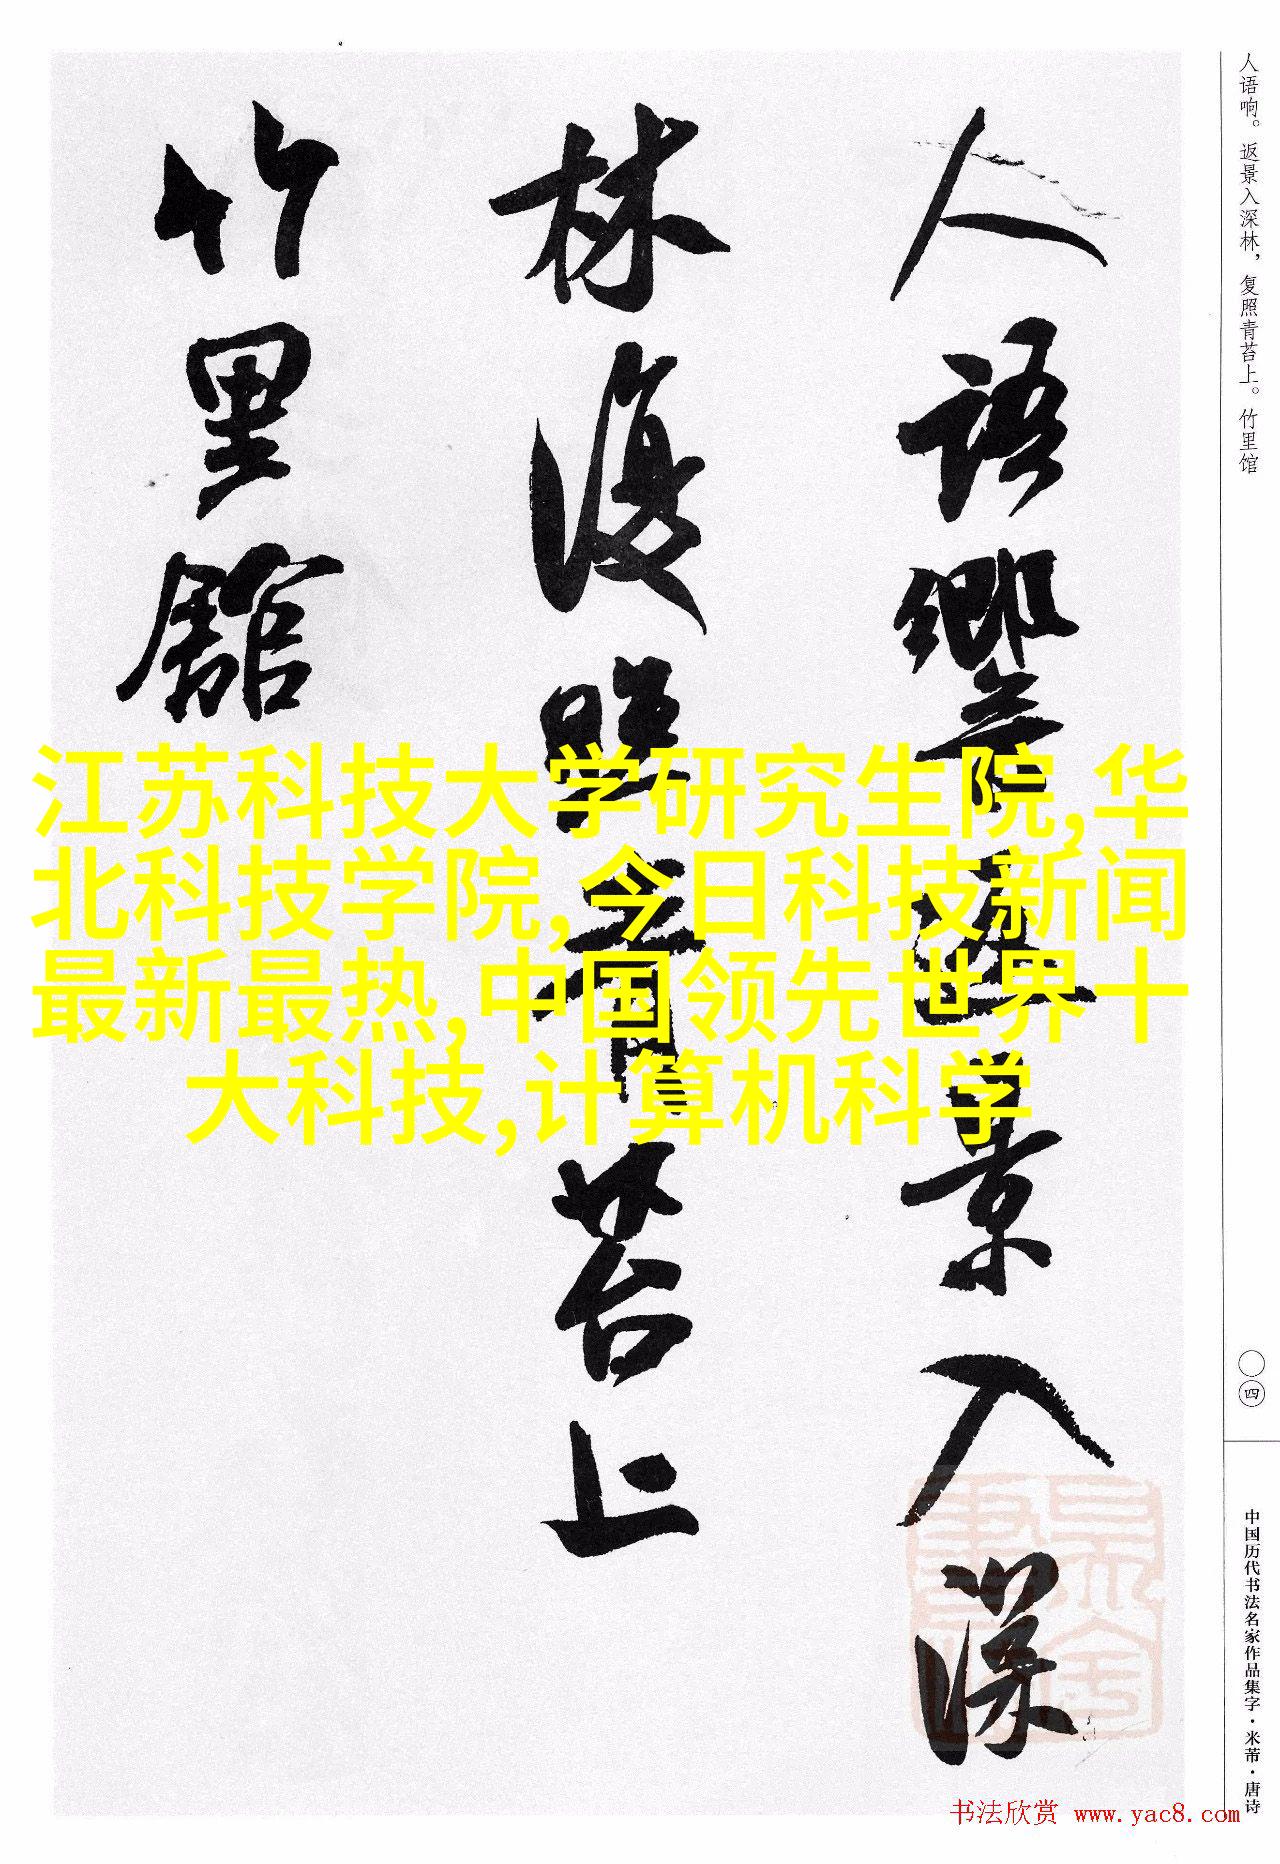 人语响。返景入深林，复照青苔上。竹里馆
人語響返景入深
林復照青苔上
竹里館
江苏科技大学研究生院,华
北科技学院,今日科技新闻
最新最热,中国领先世界十
大科技,计算机科学
〇四
中国历代书法名家作品集字·米芾·唐诗
书法欣赏 www.yac8.com